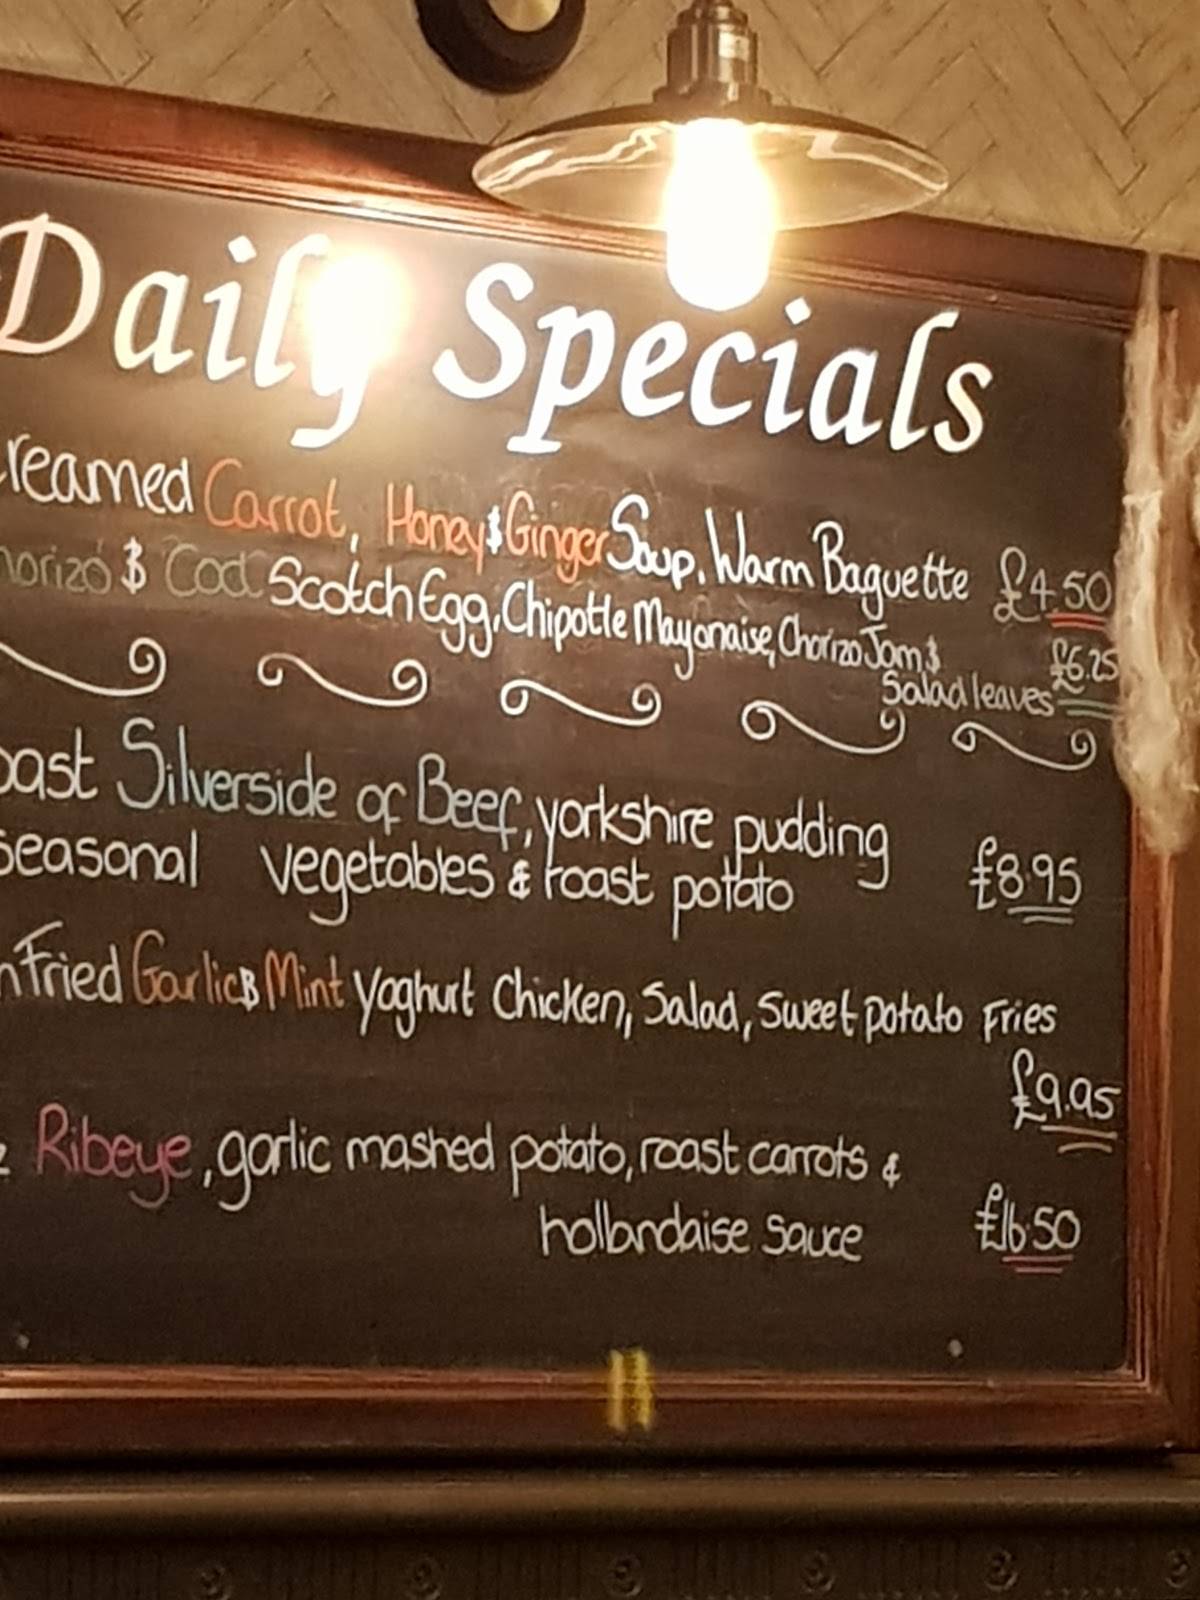 Daily Specials
reamed Carrot, Honey & Ginger Soup, Warm Baguette £4.50
horizo & Cod Scotch Egg, Chipotle Mayonaise, Chorizo Jam &
Salad leaves £6.25
oast Silverside of Beef, yorkshire pudding
seasonal vegetables & roast potato £8.95
n Fried Garlic & Mint Yoghurt Chicken, Salad, Sweet potato Fries
£9.95
Ribeye, garlic mashed potato, roast carrots &
hollandaise sauce £16.50